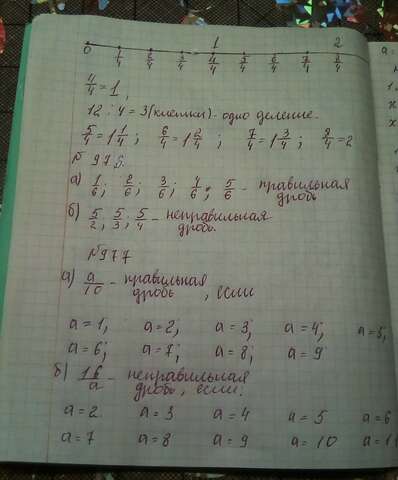 1 2
0 1/4 2/4 3/4 4/4 5/4 6/4 7/4 8/4
4/4 = 1,
12 : 4 = 3 (клетки) - одно деление.
5/4 = 1 1/4 ; 6/4 = 1 2/4 ; 7/4 = 1 3/4 ; 8/4 = 2
№ 976.
а) 1/6; 2/6; 3/6; 4/6; 5/6 - правильная
дробь
б) 5/2; 5/3; 5/4 - неправильная
дробь.
№977
а) a/10 - правильная
дробь, если
a = 1, a = 2; a = 3; a = 4; a = 5,
a = 6; a = 7; a = 8; a = 9
б) 16/a - неправильная
дробь, если:
a = 2 a = 3 a = 4 a = 5 a = 6
a = 7 a = 8 a = 9 a = 10